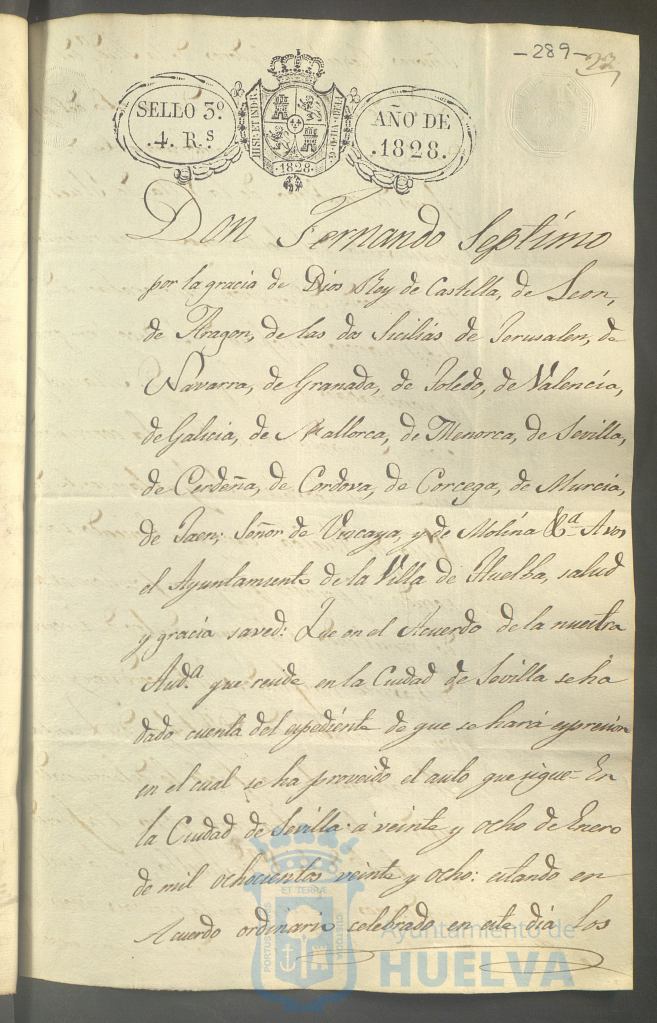 -289-
23
SELLO 3º
.4. R.s
HISP. ET IND. R.
FERD. VII. D. G.
.1828.
AÑO DE
.1828.
Don Fernando Septimo
por la gracia de Dios Rey de Castilla, de Leon,
de Aragon, de las dos Sicilias de Jerusalen, de
Navarra, de Granada, de Toledo, de Valencia,
de Galicia, de Mallorca, de Menorca, de Sevilla,
de Cerdeña, de Cordova, de Corcega, de Murcia,
de Jaen; Señor de Viscaya, y de Molina &a A vos
el Ayuntamiento de la Villa de Huelba, salud
y gracia saved: Que en el Acuerdo de la nuestra
Auda que reside en la Ciudad de Sevilla se ha
dado cuenta del espediente de que se hará espresion
en el cual se ha proveido el auto que sigue= En
la Ciudad de Sevilla á veinte y ocho de Enero
de mil ochocientos veinte y ocho: estando en
Acuerdo ordinario celebrado en este dia los
PORTUS MARIS
ET TERRÆ
CUSTODIA
Ayuntamiento de
HUELVA